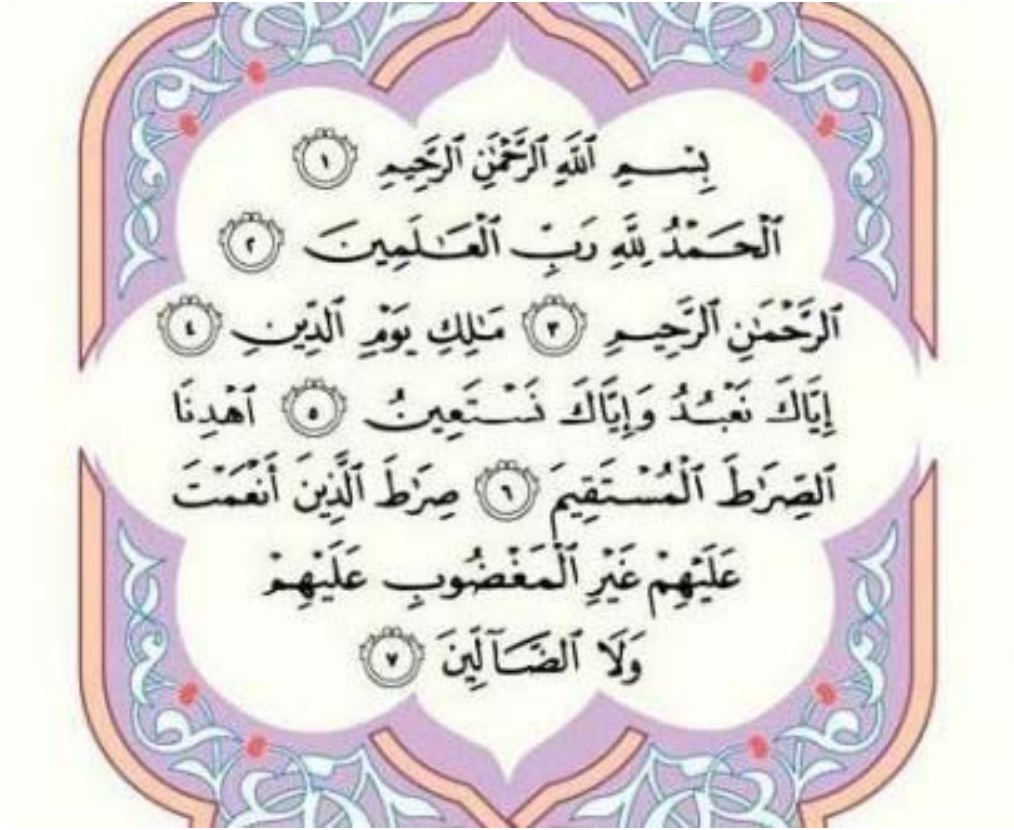 بِسْمِ ٱللَّهِ ٱلرَّحْمَٰنِ ٱلرَّحِيمِ ١
ٱلْحَمْدُ لِلَّهِ رَبِّ ٱلْعَـٰلَمِينَ ٢
ٱلرَّحْمَـٰنِ ٱلرَّحِيمِ ٣ مَـٰلِكِ يَوْمِ ٱلدِّينِ ٤
إِيَّاكَ نَعْبُدُ وَإِيَّاكَ نَسْتَعِينُ ٥ ٱهْدِنَا
ٱلصِّرَٰطَ ٱلْمُسْتَقِيمَ ٦ صِرَٰطَ ٱلَّذِينَ أَنْعَمْتَ
عَلَيْهِمْ غَيْرِ ٱلْمَغْضُوبِ عَلَيْهِمْ
وَلَا ٱلضَّآلِّينَ ٧